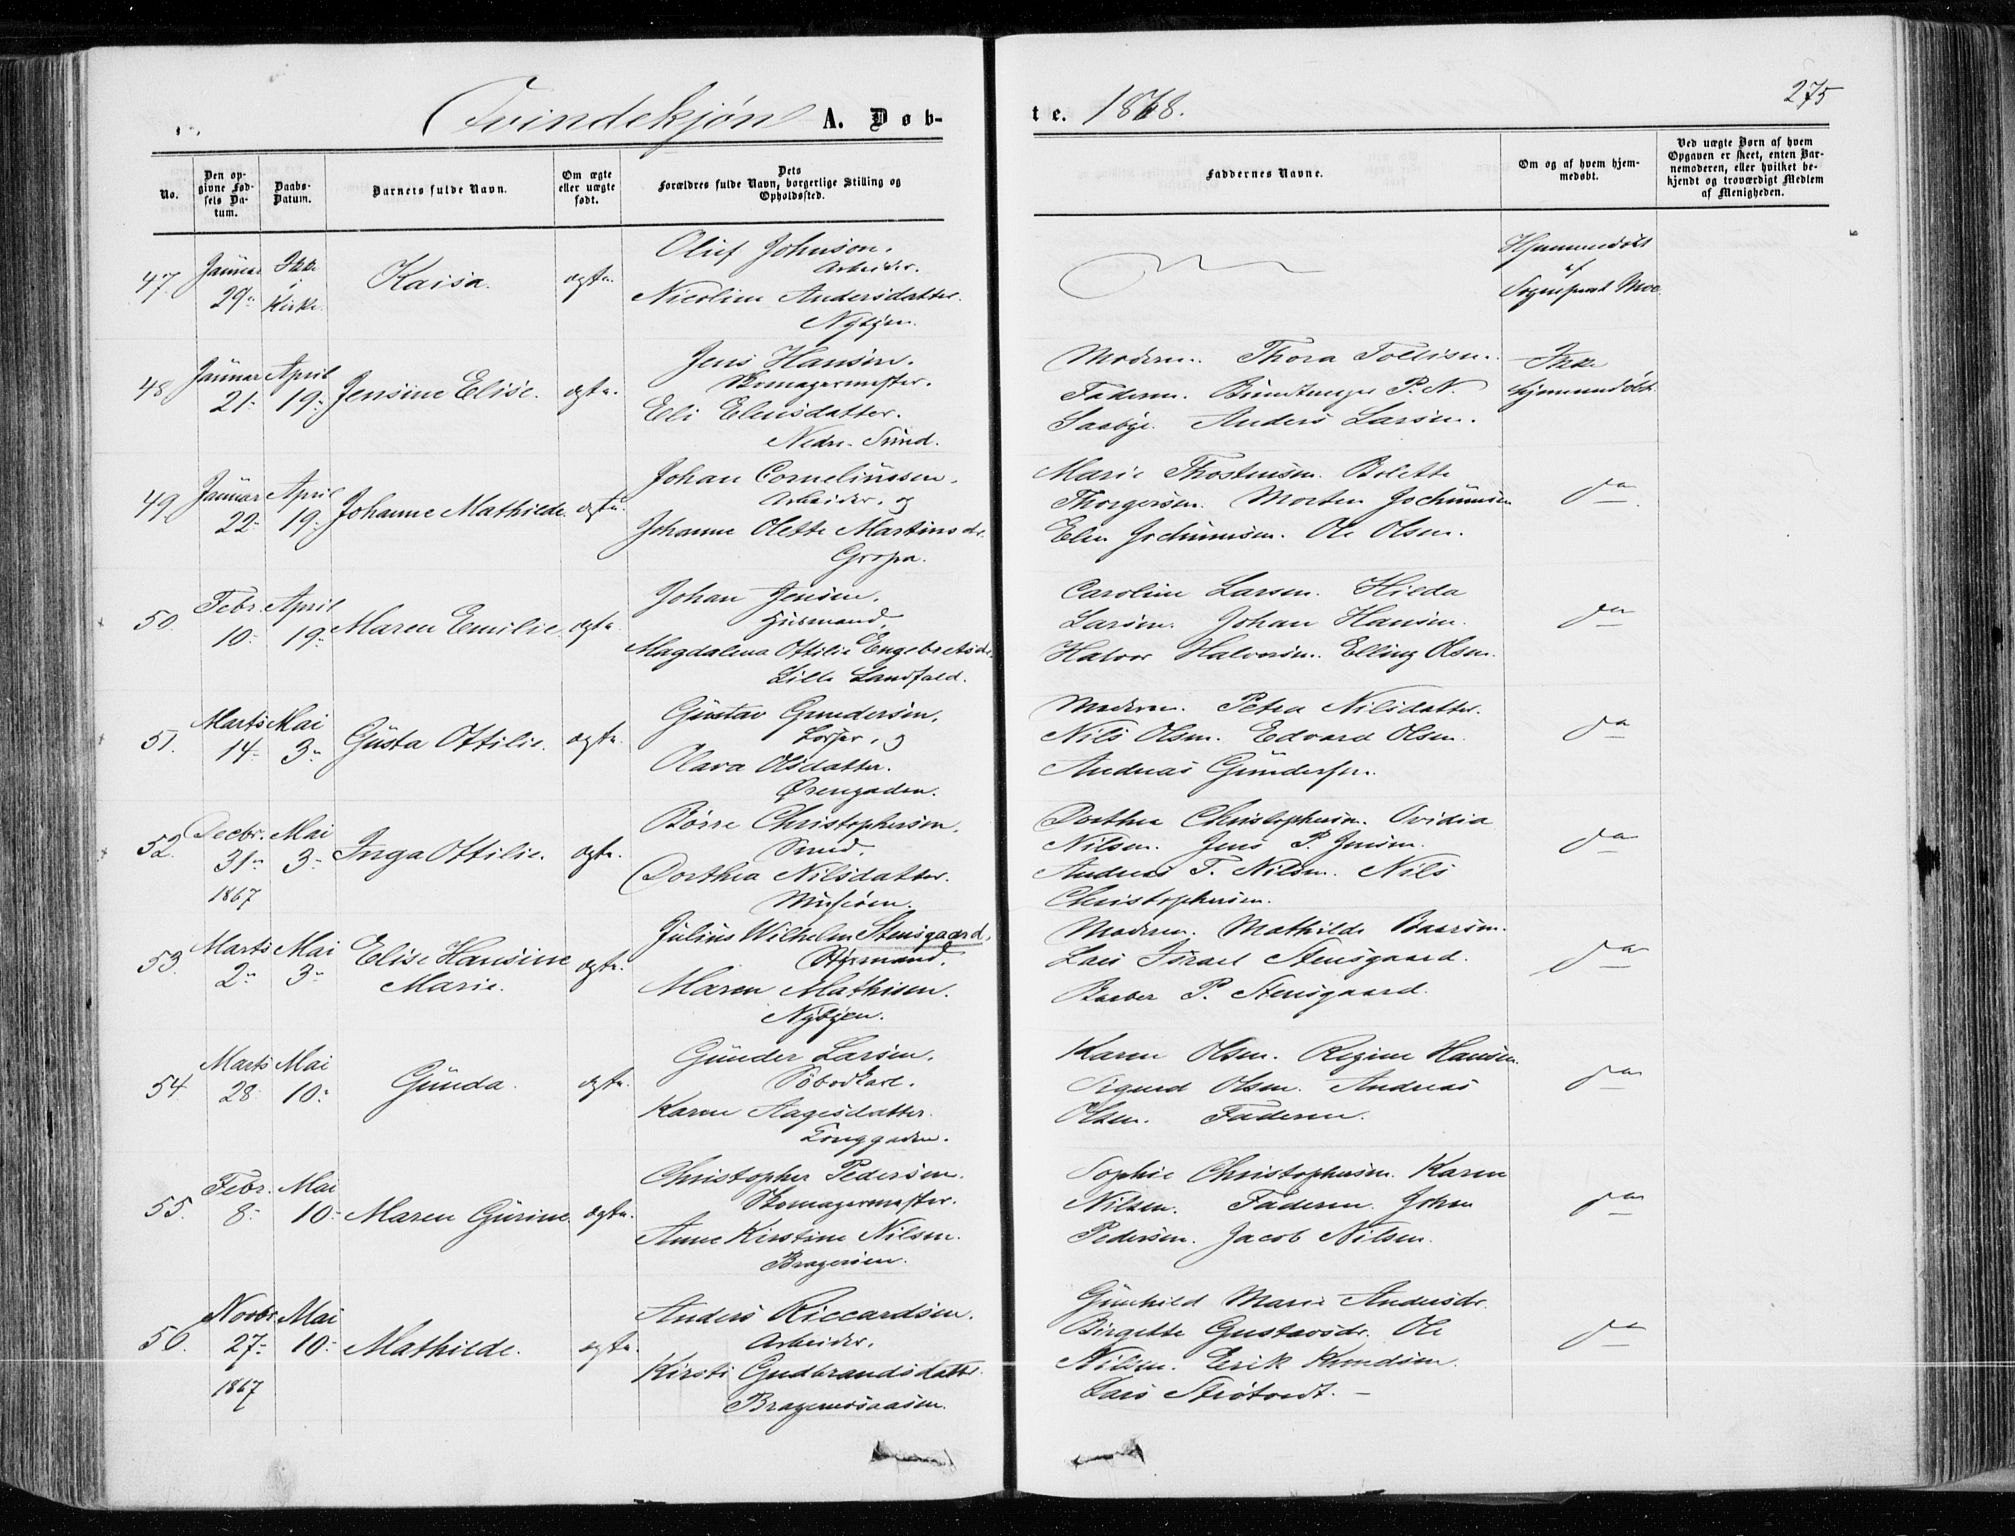 Qvindekjøn A. Døb-
te. 1868.
275
No.
Den op-
givne Fød-
sels Da-
tum.
Daabs-
Datum.
Barnets fulde Navn.
Om ægte
eller uægte
født.
Dets
Forældres fulde Navn, borgerlige Stilling og
Opholdssted.
Faddernes Navne.
Om og af hvem hjem-
medøbt.
Ved uægte Børn af hvem
Opgaven er skeet, enten Bar-
nemoderen, eller hvilket be-
kjendt og troværdigt Medlem
af Menigheden.
47.
Januar
29
Ikke
i
Kirke.
Kaisa.
ægte.
Oluf Johnson.
Arbeider.
Nicoline Andersdatter.
Nybyen.
Hjemmedøbt
af
Sognepræst Moe.
48.
Januar
21
April
19
Jensine Elise.
ægte.
Jens Hansen.
Skomagermester.
Eli Elensdatter.
Nedre Sund.
Moderen. Thora Tollisen.
Faderen. Buntmager P. N.
Saabye. Anders Larsen.
Ikke
hjemmedøbt.
49.
Januar
22
April
19
Johanne Mathilde.
ægte.
Johan Corneliussen.
Arbeider, og
Johanne Olette Martinsdr.
Gropa.
Marie Thostensen. Bolette
Thorgersen. Morten Jochumsen
Elen Jochumsen. Ole Olsen.
da
50.
Febr.
10
April
19
Maren Emilie.
ægte.
Johan Jensen.
Husmand.
Magdalena Ottilie Engebretsdr.
Lille Landfald.
Caroline Larsen. Hilda
Larsen. Johan Hansen.
Halvor Halvorsen. Elling Olsen.
da
51.
Marts
14
Mai
3
Gusta Ottilie.
ægte.
Gustav Gundersen.
Losser, og
Olava Olsdatter.
Ørengaden.
Moderen. Petra Nilsdatter.
Nils Olsen. Edvard Olsen.
Andreas Gundersen.
da
52.
Decbr.
31
1867
Mai
3
Inga Ottilie.
ægte.
Børre Christophersen.
Smed.
Dorthea Nilsdatter.
Dorthea Christophersen. Ovidia
Nilsen. Jens P. Jensen.
Andreas T. Nilsen. Nils
Christophersen.
da
53.
Marts
2
Mai
3
Elise Hansine
Marie.
ægte.
Julius Wilhelm Stensgaard.
Styrmand.
Maren Mathisen.
Nybyen.
Moderen. Mathilde Baarsen.
Lars Israel Stensgaard.
P. Stensgaard.
da
54
Marts
28
Mai
10
Gunda.
ægte.
Gunder Larsen.
Karen Aagesdatter.
Tonggaden.
Karen Olsen. Regine Hansen.
Sigurd Olsen. Andreas
Olsen. Faderen.
da
55.
Febr.
8
Mai
10
Maren Gurine.
ægte.
Christopher Pedersen.
Skomagermester.
Anne Kirstine Nilsen.
Bragerøen.
Sophie Christophersen. Karen
Nilsen. Faderen. Johan
Pedersen. Jacob Nilsen.
da
56.
Novbr
27
1867
Mai
10
Mathilde.
ægte.
Anders Riccardsen.
Arbeider.
Kirsti Gudbrandsdatter.
Bragernesaasen.
Gunhild Marie Andersdr.
Birgette Gustavsdr. Ole
Nilsen. Erik Knudsen.
Lars Strøtvedt. –
da